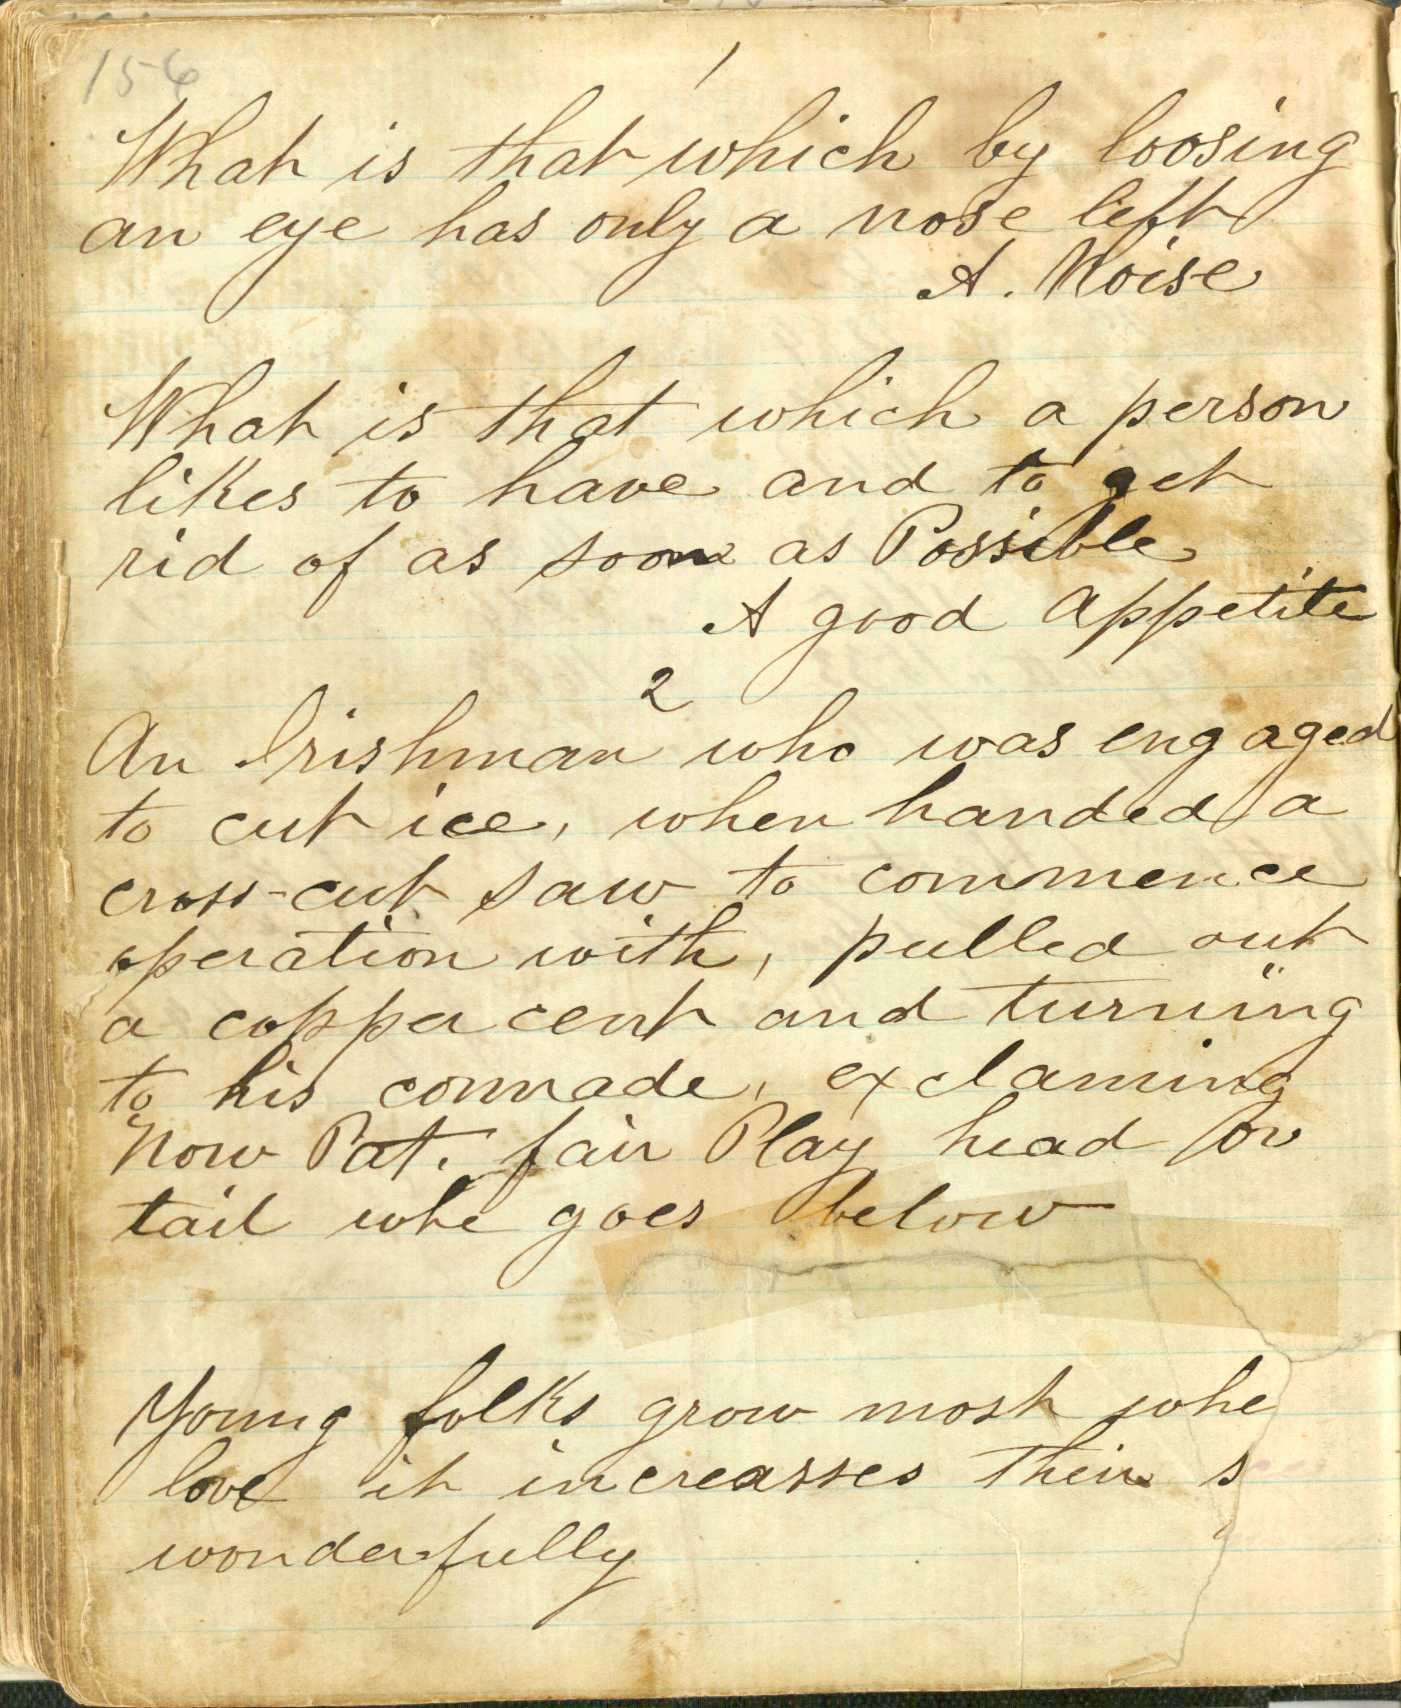 156
1
What is that which by loosing
an eye has only a nose left
A. Noise
What is that which a person
likes to have and to get
rid of as soon as Possible
A good appetite
2
An Irishman who was engaged
to cut ice, when handed a
cross-cut saw to commence
operation with, pulled out
a copper cent and turning
to his comrade, exclaming
Now Pat. fair Play head or
tail who goes below
Young folks grow most whe
love it increasses their s
wonderfully